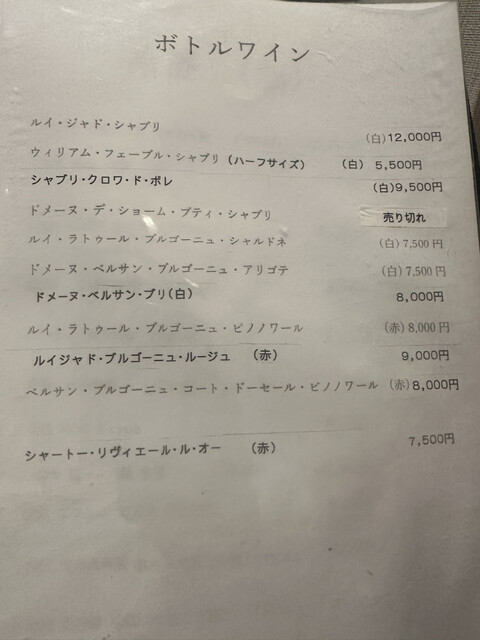 ボトルワイン
ルイ・ジャド・シャブリ (白)12,000円
ウィリアム・フェーブル・シャブリ(ハーフサイズ) (白) 5,500円
シャブリ・クロワ・ド・ポレ (白)9,500円
ドメーヌ・デ・ショーム・プティ・シャブリ 売り切れ
ルイ・ラトゥール・ブルゴーニュ・シャルドネ (白)7,500円
ドメーヌ・ベルサン・ブルゴーニュ・アリゴテ (白)7,500円
ドメーヌ・ベルサン・ブリ(白) 8,000円
ルイ・ラトゥール・ブルゴーニュ・ピノノワール (赤)8,000円
ルイジャド・ブルゴーニュ・ルージュ (赤) 9,000円
ベルサン・ブルゴーニュ・コート・ドーセール・ピノノワール (赤)8,000円
シャートー・リヴィエール・ル・オー (赤) 7,500円